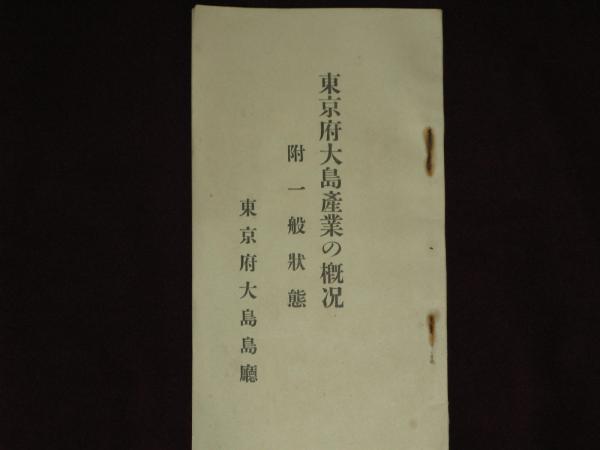 東京府大島產業の概况
附一般狀態
東京府大島島廳